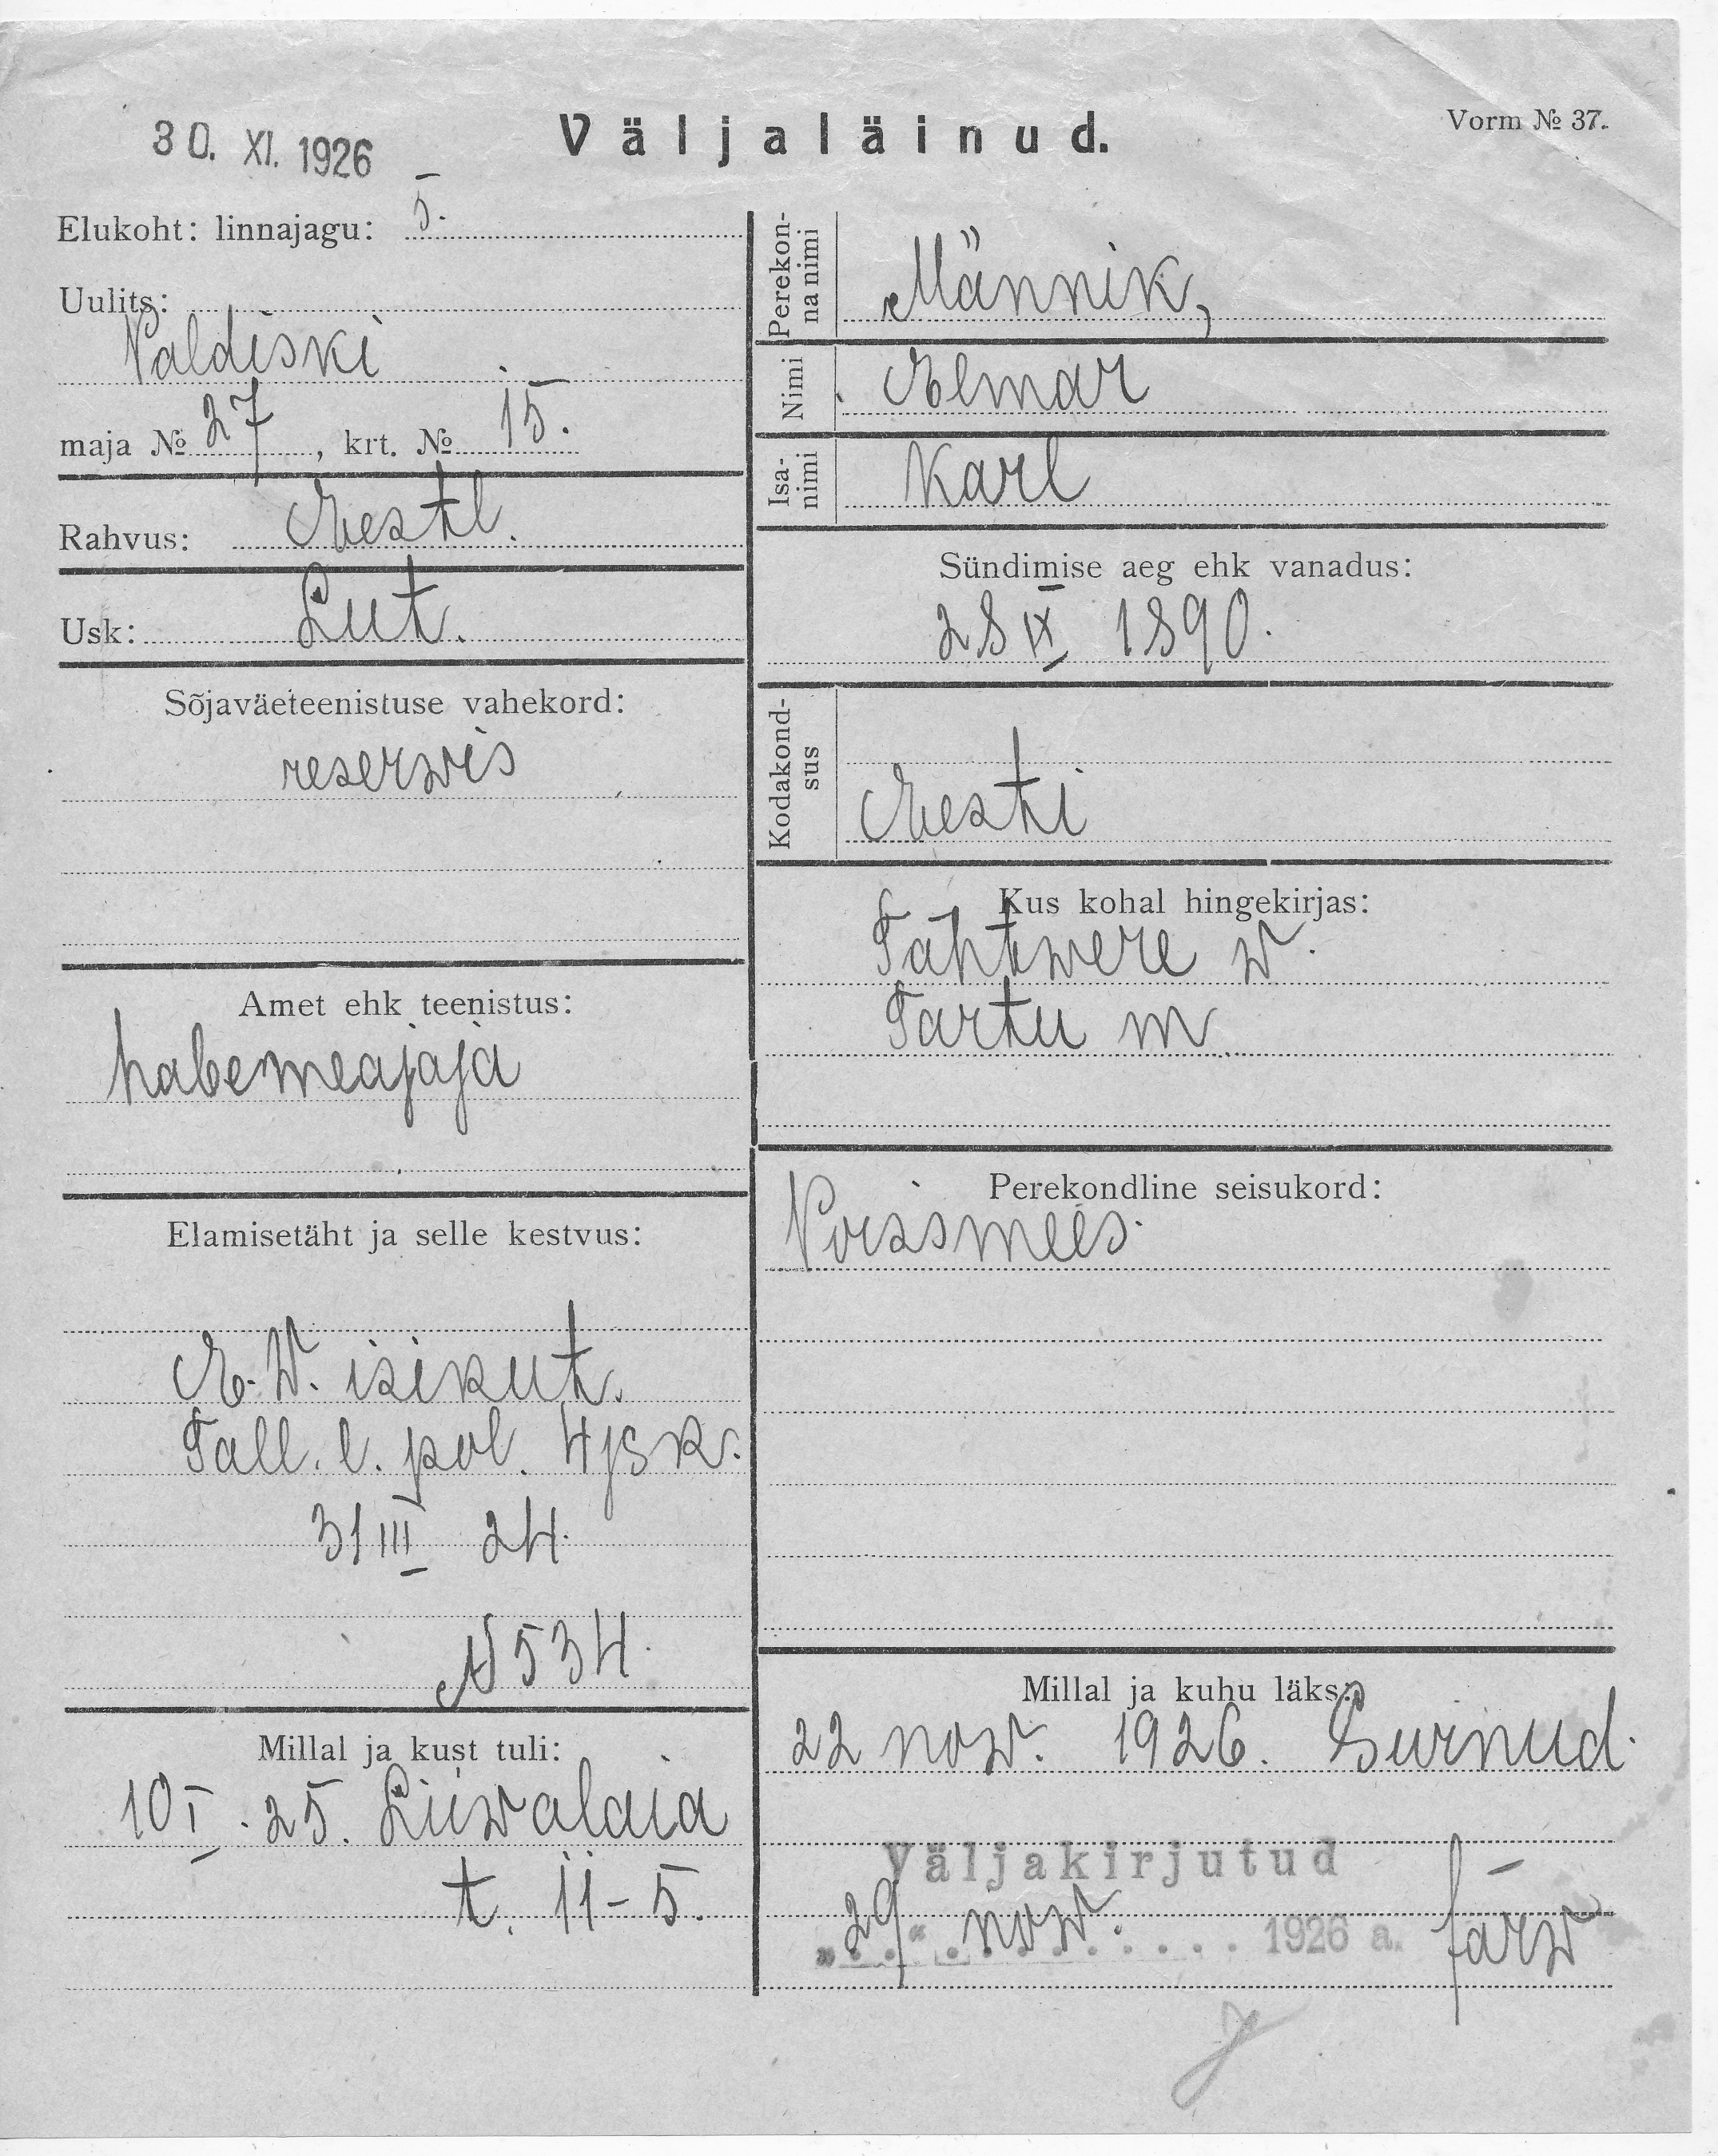 30. XI. 1926
Väljaläinud.
Vorm № 37.
Elukoht: linnajagu: 5.
Uulits:
Paldiski
maja № 27, krt. № 15.
Rahvus: Eestl.
Usk: Lut.
Sõjaväeteenistuse vahekord:
reserwis
Amet ehk teenistus:
habemeajaja
Elamisetäht ja selle kestvus:
E. W. isikut.
Tall. l. pol. 4 jsk.
31 III 24.
N 534.
Millal ja kust tuli:
10 I. 25. Liiwalaia
t. 11-5.
Perekonna nimi Männik,
Nimi Elmar
Isanimi Karl
Sündimise aeg ehk vanadus:
28 IX 1890.
Kodakondsus
Eesti
Kus kohal hingekirjas:
Tähtwere w.
Tartu m
Perekondline seisukord:
Poissmees.
Millal ja kuhu läks:
22 now. 1926. Surnud.
Väljakirjutud
"29" now. 1926 a. Järw